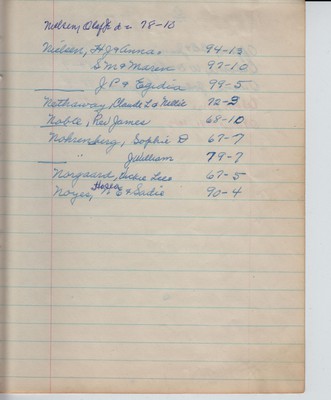 Nielsen, Olaf 78-10
Nielsen, H J & Anna 94-13
S M & Maren 97-10
J. P & Egidia 99-5
Nethaway, Claude L & Nellie 72-2
Noble, Rev James 68-10
Nohrenberg, Sophie D 67-7
" J William 79-7
Norgaard, Lee 67-5
Noyes, E & Sadie 90-4